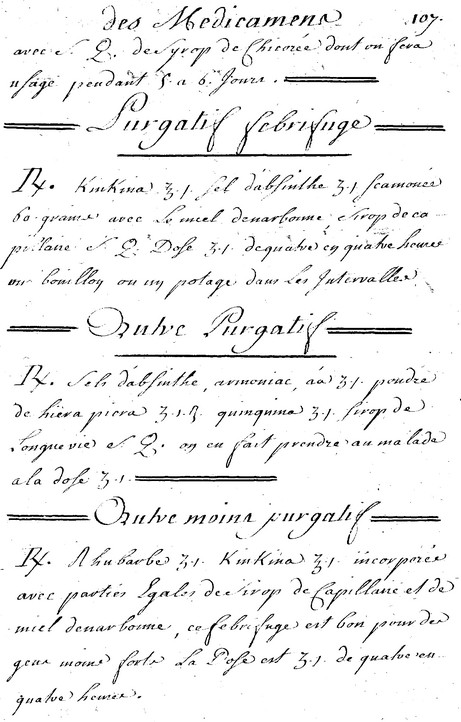 des Medicamens 107.
avec S. Q. de Syrop de Chicorée dont on fera
usage pendant 5 a 6 Jours.
Purgatif febrifuge
℞. KinKina ʒ.1. sel d'absinthe ʒ.1 scamonée
60. grains avec Le miel denarbonne Sirop de ca
pillaire S. Q. Dose ʒ.1. de quatre en quatre heures
un bouillon ou un potage dans Les Intervalles
Autre Purgatif
℞. Sels d'absinthe, armoniac, āā ʒ.1. poudre
de hiera picra ʒ.1.ß. quinquina ʒ.1. sirop de
Longue vie S. Q. on en fait prendre au malade
a la dose ʒ.1.
Autre moins purgatif
℞. Rhubarbe ʒ.1. KinKina ʒ.1. incorporée
avec parties Egales de Sirop de Capillaire et de
miel denarbonne, ce febrifuge est bon pour des
gens moins forts La Dose est ʒ.1. de quatre en
quatre heures.